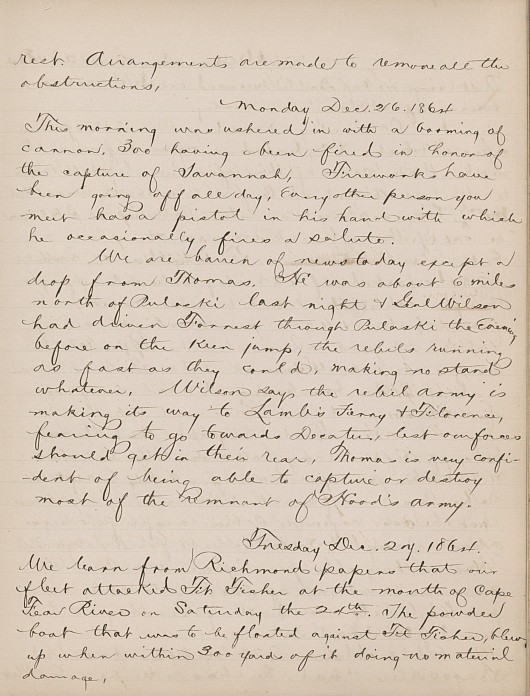 rest. Arrangements are made to remove all the
obstructions,
Monday Dec. 26. 1864
This morning was ushered in with a booming of
cannon, 300 having been fired in honor of
the capture of Savannah, Fireworks have
been going off all day, Every other person you
meet has a pistol in his hand with which
he occasionally fires a salute.
We are barren of news today except a
drop from Thomas. He was about 6 miles
north of Pulaski last night & Genl Wilson
had driven Forrest through Pulaski the Evening
before on the keen jump, the rebels running
as fast as they could, making no stand
whatever, Wilson says the rebel army is
making its way to Lambs Ferry & Florence,
fearing to go towards Decatur, lest our forces
should get in their rear, Thomas is very confi-
dent of being able to capture or destroy
most of the remnant of Hood's army.
Tuesday Dec. 27. 1864.
We learn from Richmond papers that our
fleet attacked Ft Fisher at the mouth of Cape
Fear River on Saturday the 24th. The powder
boat that was to be floated against Ft Fisher, blew
up when within 300 yards of it doing no material
damage,